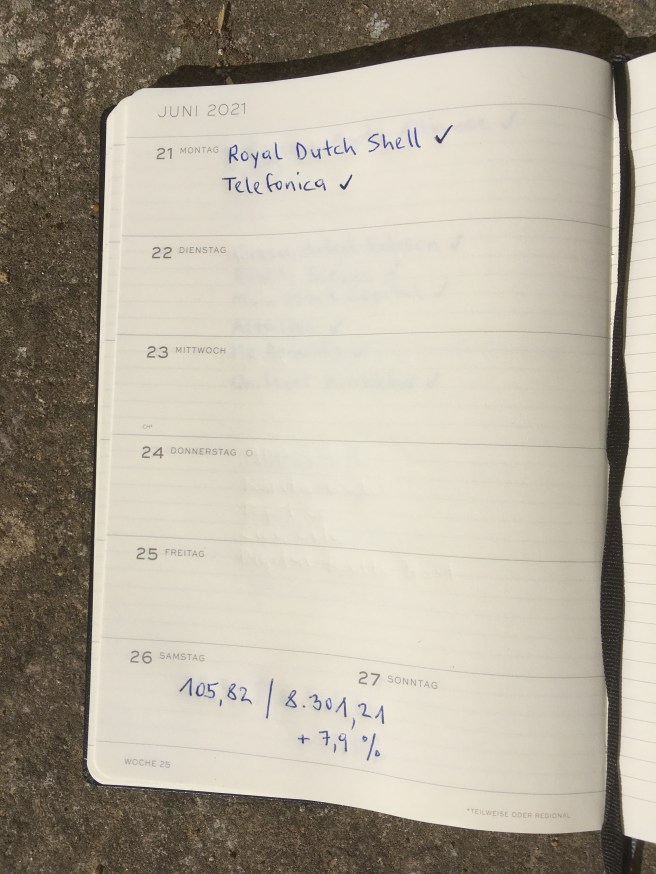 JUNI 2021
21 MONTAG Royal Dutch Shell ✓
Telefonica ✓
22 DIENSTAG
23 MITTWOCH
24 DONNERSTAG
25 FREITAG
26 SAMSTAG
27 SONNTAG
105,82 | 8.301,21
+ 7,9 %
WOCHE 25
*TEILWEISE ODER REGIONAL